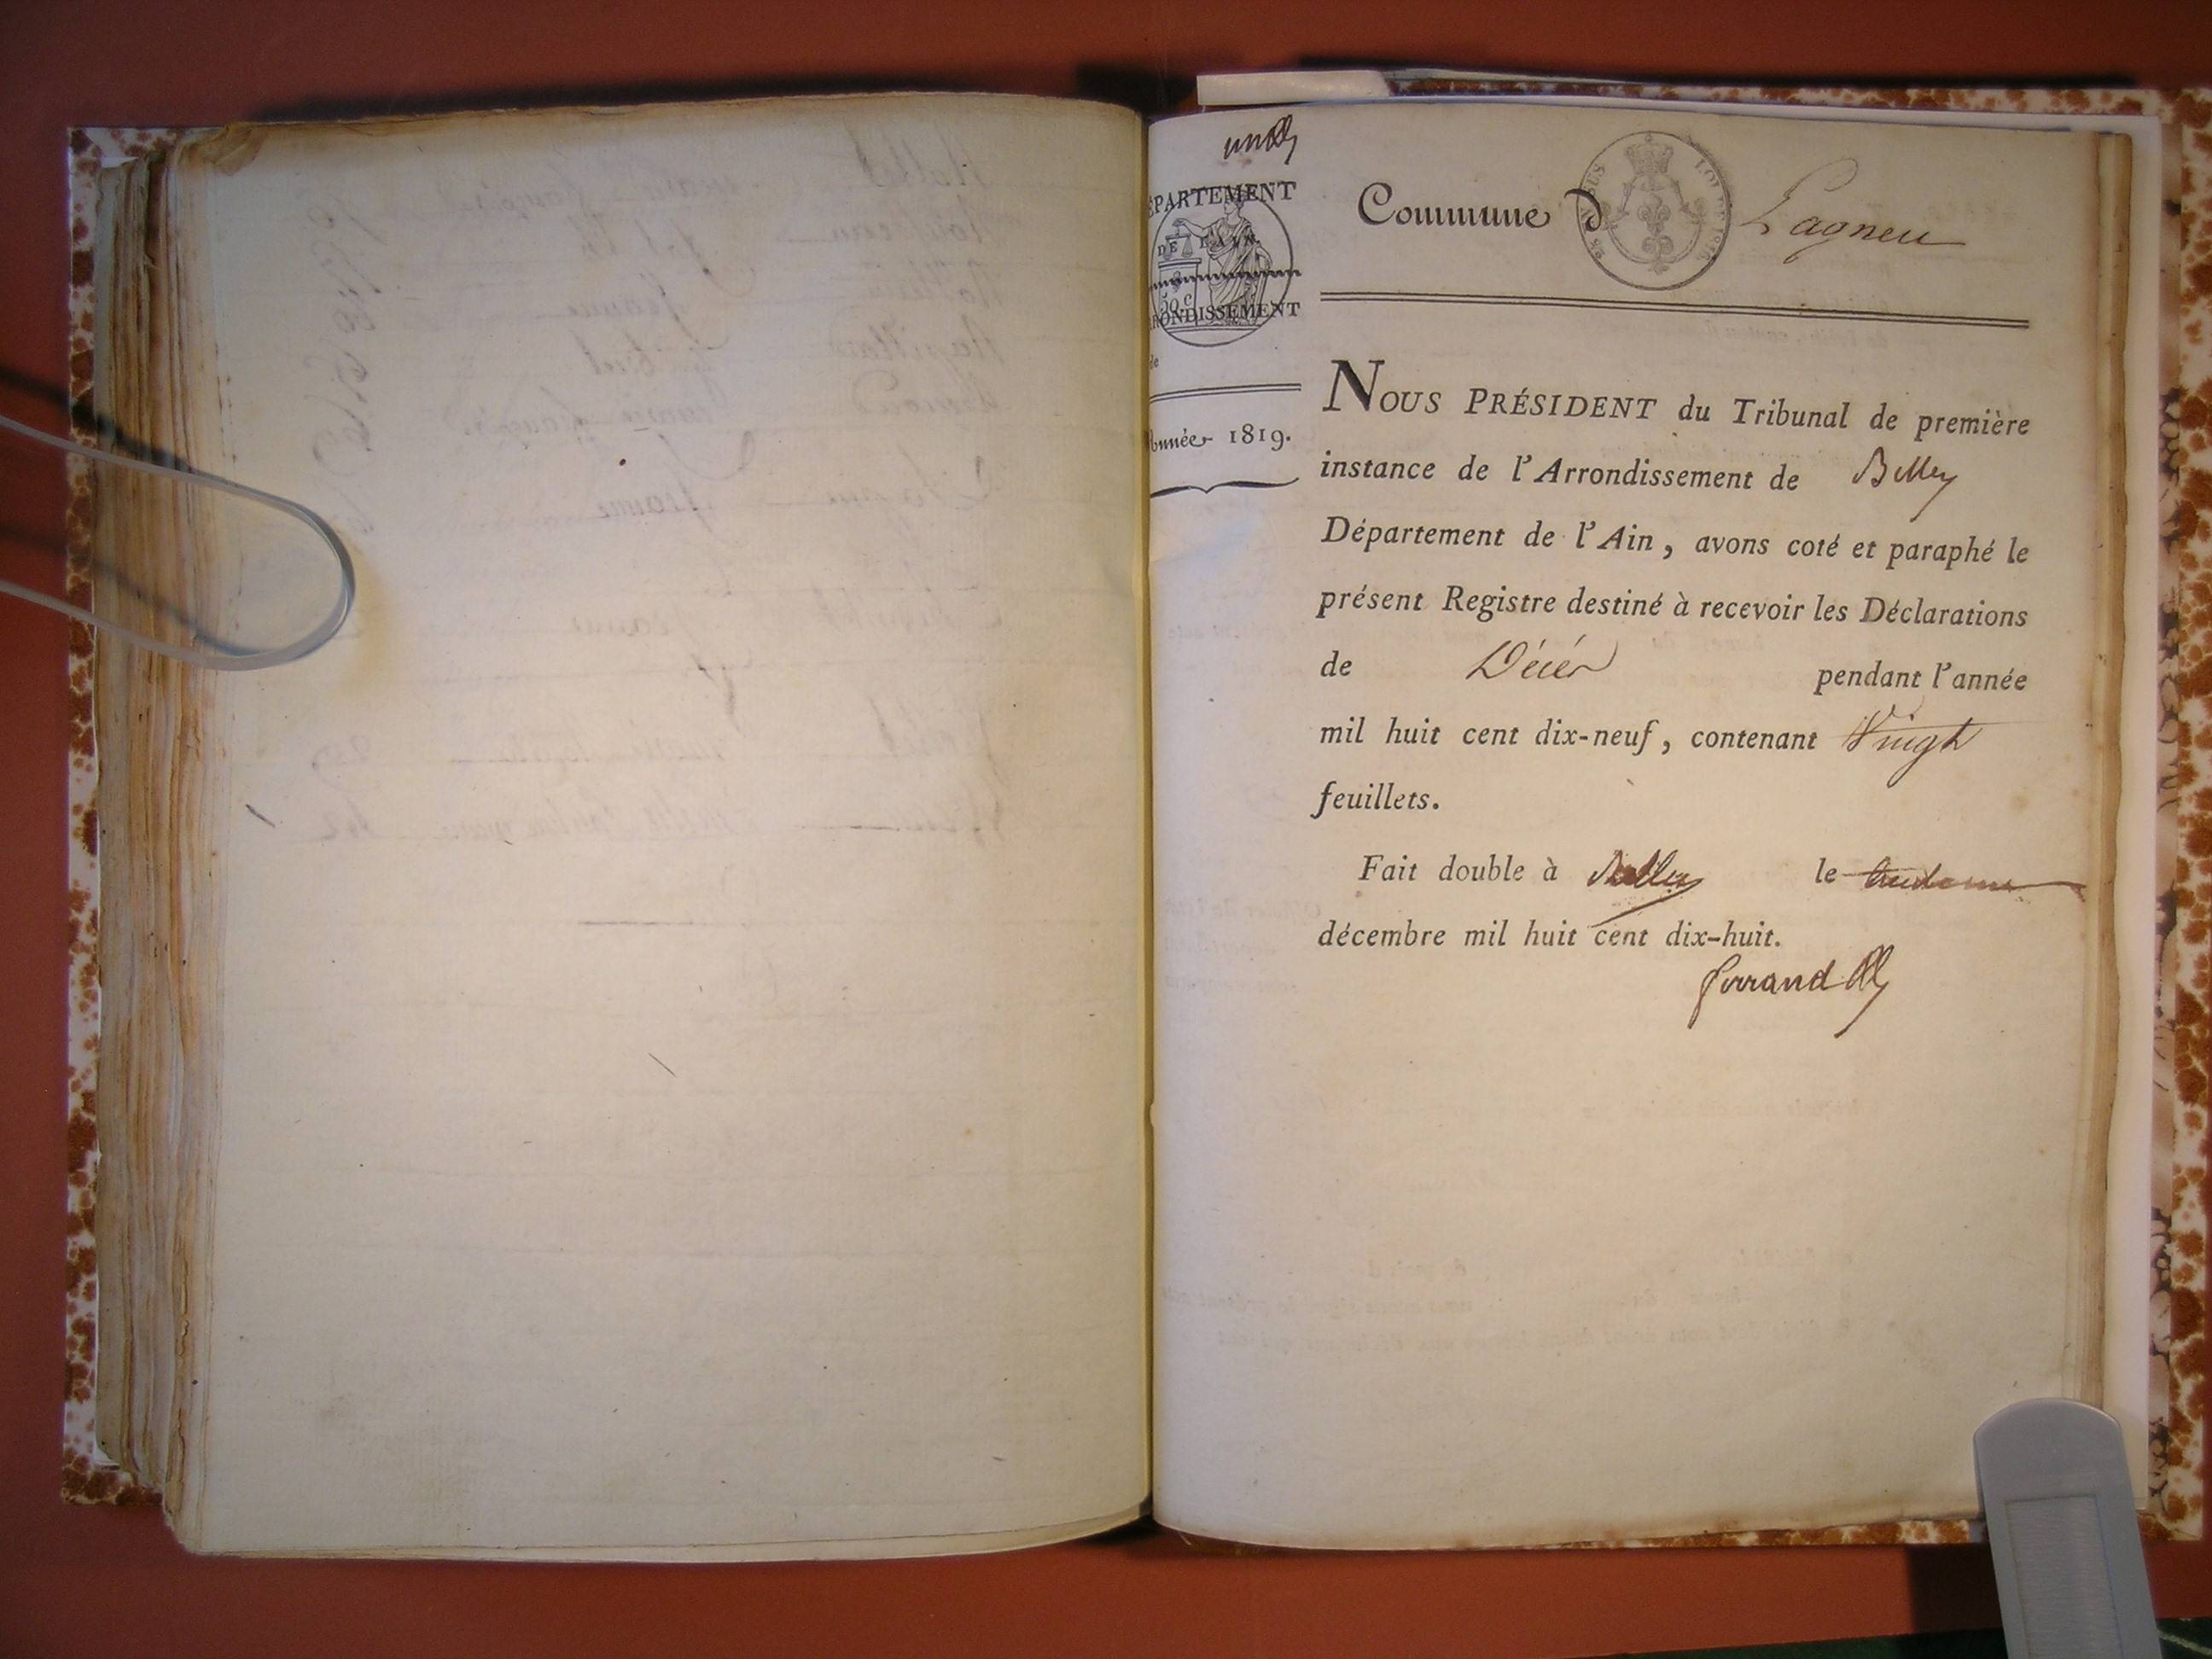 DÉPARTEMENT
DE L'AIN.
50 c
ARRONDISSEMENT
de
Année 1819.
Commune d Lagneu
NOUS PRÉSIDENT du Tribunal de première
instance de l'Arrondissement de Belley
Département de l'Ain, avons coté et paraphé le
présent Registre destiné à recevoir les Déclarations
de Décés pendant l'année
mil huit cent dix-neuf, contenant Vingt
feuillets.
Fait double à Belley le
décembre mil huit cent dix-huit.